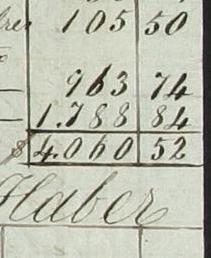 105 50
963 74
1.788 84
$ 4.060 52
Haber